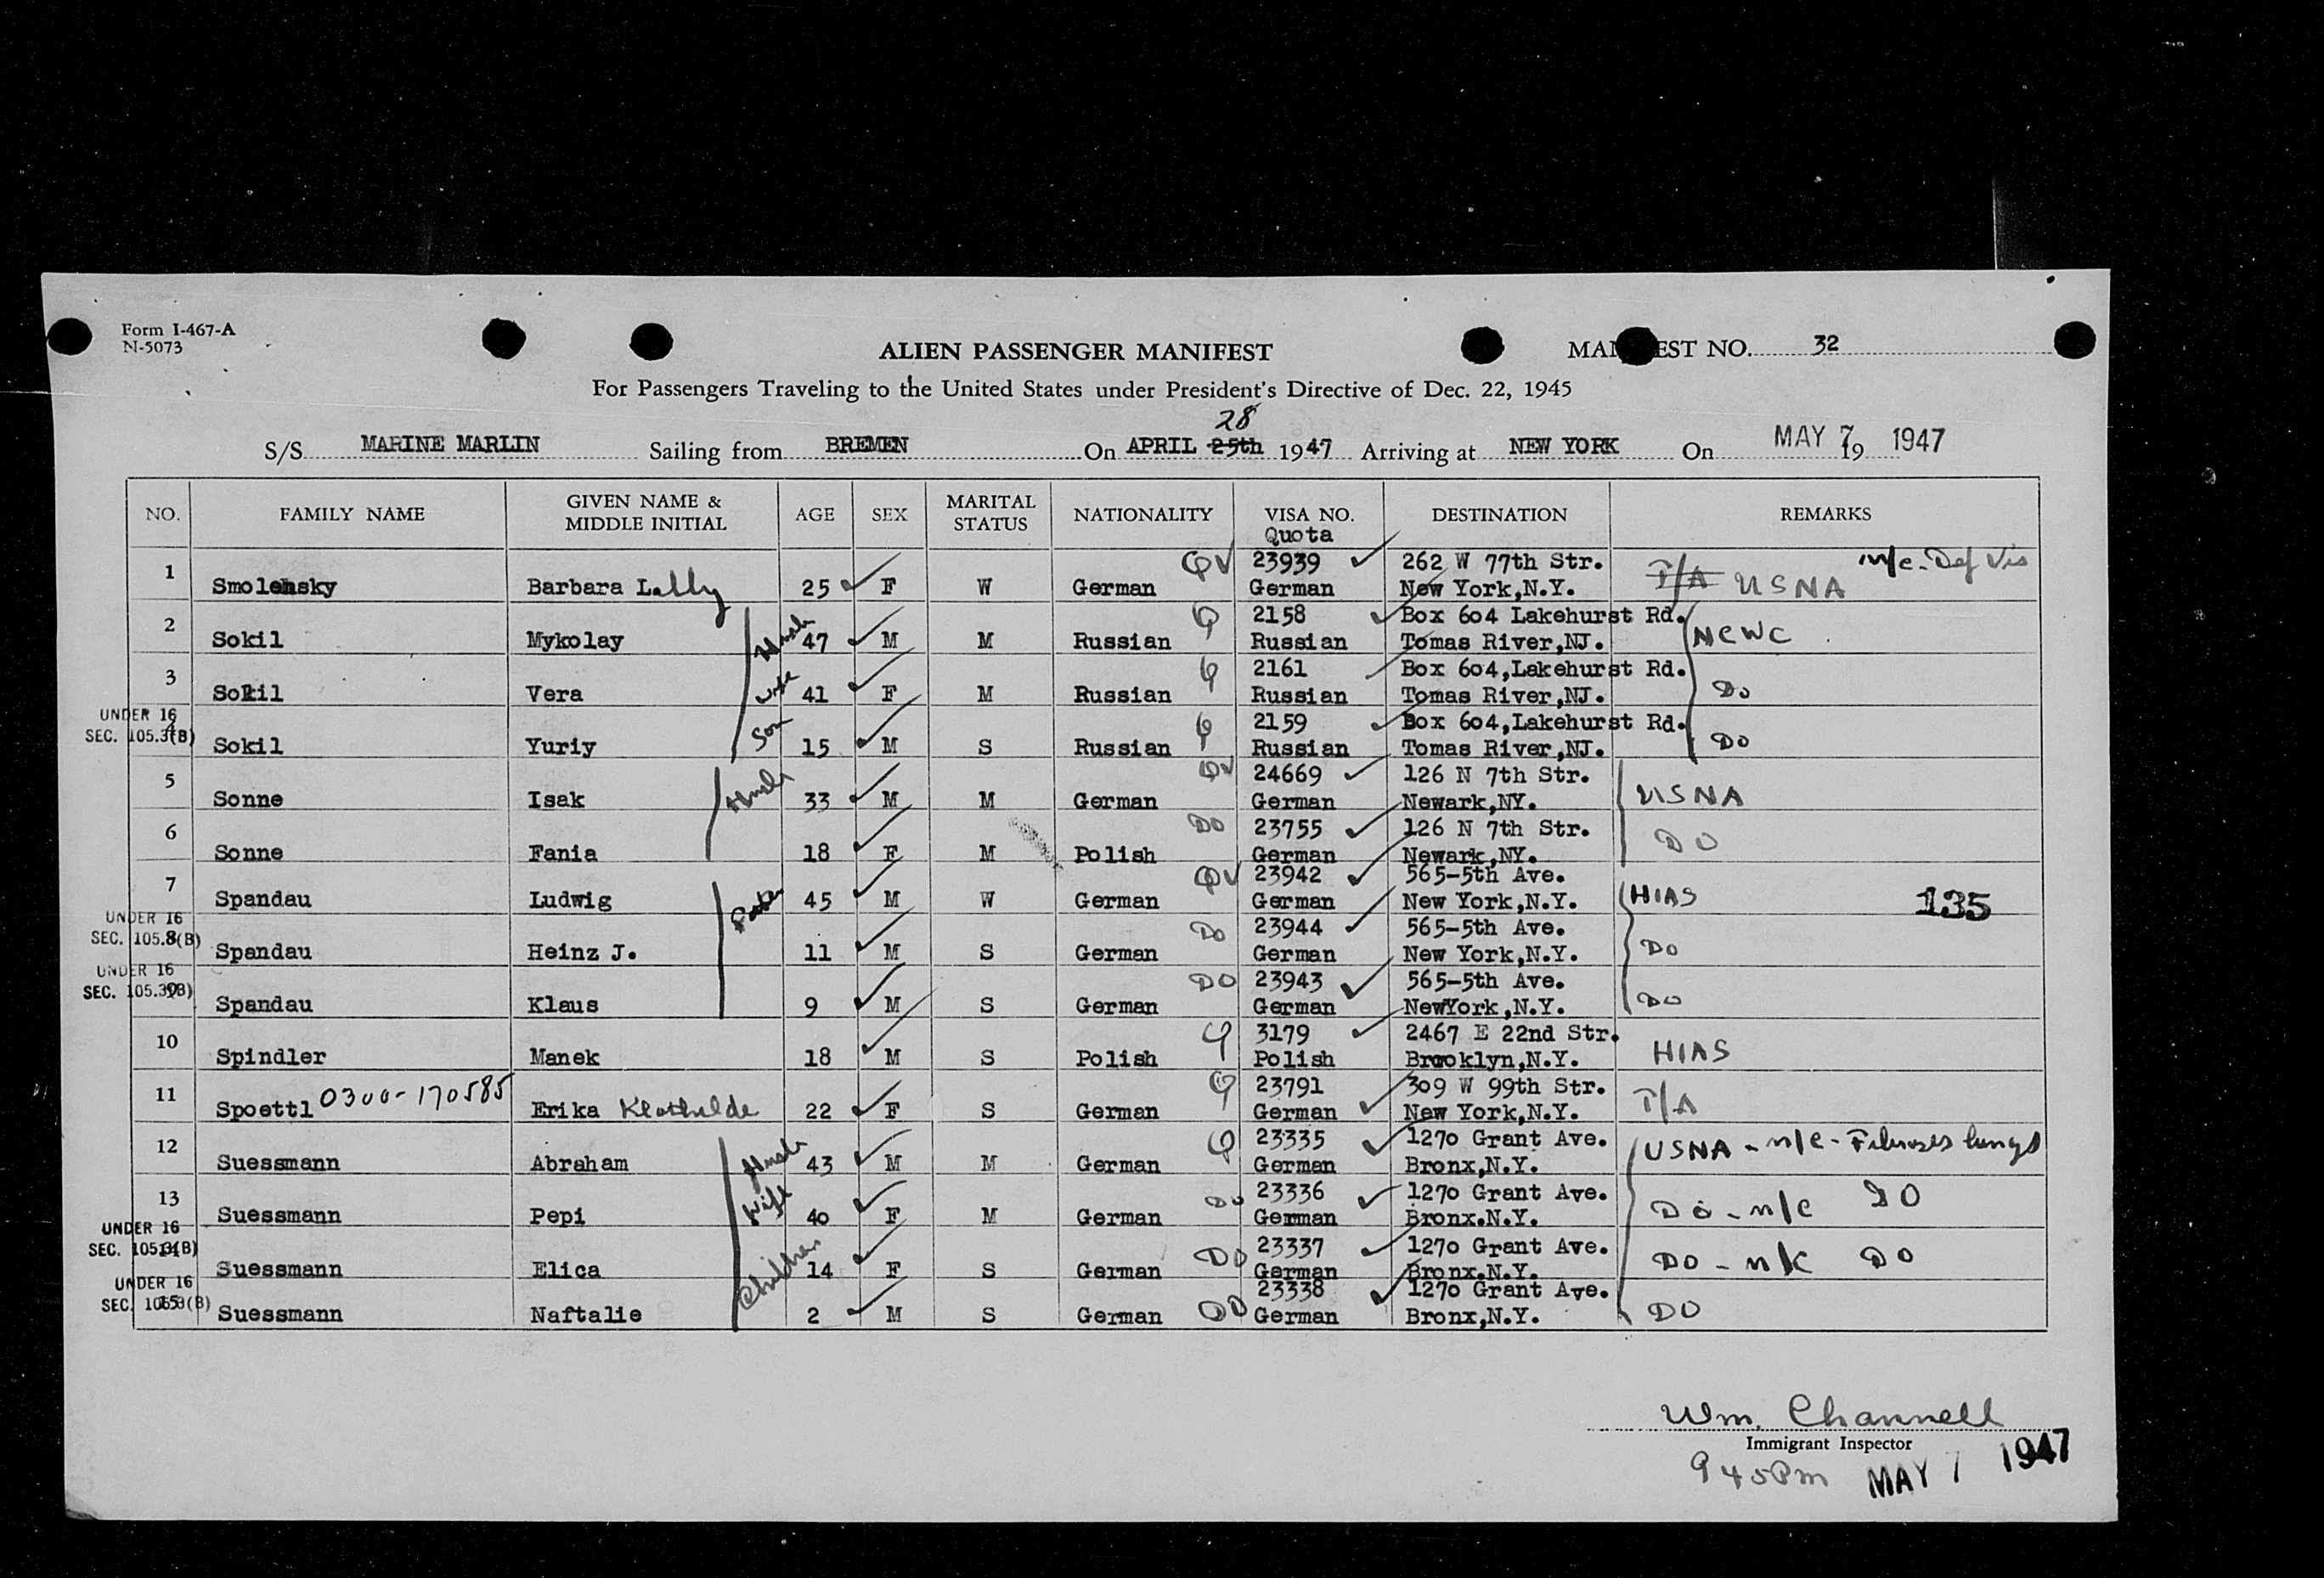 Form I-467-A
N-5073
ALIEN PASSENGER MANIFEST
MAN EST NO. 32
For Passengers Traveling to the United States under President's Directive of Dec. 22, 1945
28
S/S MARINE MARLIN Sailing from BREMEN On APRIL 25th 1947 Arriving at NEW YORK On MAY 7 19 1947
NO. FAMILY NAME GIVEN NAME & MIDDLE INITIAL AGE SEX MARITAL STATUS NATIONALITY VISA NO. Quota DESTINATION REMARKS
1 Smolensky Barbara Lally 25 F W German QV 23939 German 262 W 77th Str. New York,N.Y. T/A USNA n/c-Def Vis
2 Sokil Mykolay Husb 47 M M Russian Q 2158 Russian Box 604 Lakehurst Rd. Tomas River,NJ. NCWC
3 Sokil Vera wife 41 F M Russian Q 2161 Russian Box 604,Lakehurst Rd. Tomas River,NJ. Do
UNDER 16 SEC. 105.3(B) 4 Sokil Yuriy Son 15 M S Russian Q 2159 Russian Box 604,Lakehurst Rd. Tomas River,NJ. Do
5 Sonne Isak Husb 33 M M German QV 24669 German 126 N 7th Str. Newark,NY. USNA
6 Sonne Fania 18 F M Polish DO 23755 German 126 N 7th Str. Newark,NY. DO
7 Spandau Ludwig Father 45 M W German QV 23942 German 565-5th Ave. New York,N.Y. HIAS 135
UNDER 16 SEC. 105.3(B) 8 Spandau Heinz J. 11 M S German Do 23944 German 565-5th Ave. New York,N.Y. DO
UNDER 16 SEC. 105.3(B) 9 Spandau Klaus 9 M S German DO 23943 German 565-5th Ave. NewYork,N.Y. DO
10 Spindler Manek 18 M S Polish Q 3179 Polish 2467 E 22nd Str. Brooklyn,N.Y. HIAS
11 Spoettl 0300-170585 Erika Klothilde 22 F S German Q 23791 German 309 W 99th Str. New York,N.Y. T/A
12 Suessmann Abraham Husb 43 M M German Q 23335 German 1270 Grant Ave. Bronx,N.Y. USNA - n/c - lungs
13 Suessmann Pepi Wife 40 F M German Do 23336 German 1270 Grant Ave. Bronx.N.Y. Do - n/c DO
UNDER 16 SEC. 105.3(B) 14 Suessmann Elica Children 14 F S German DO 23337 German 1270 Grant Ave. Bronx.N.Y. DO - n/c DO
UNDER 16 SEC. 105.3(B) 15 Suessmann Naftalie 2 M S German DO 23338 German 1270 Grant Ave. Bronx,N.Y. DO
Wm. Channell
Immigrant Inspector
945Pm MAY 7 1947